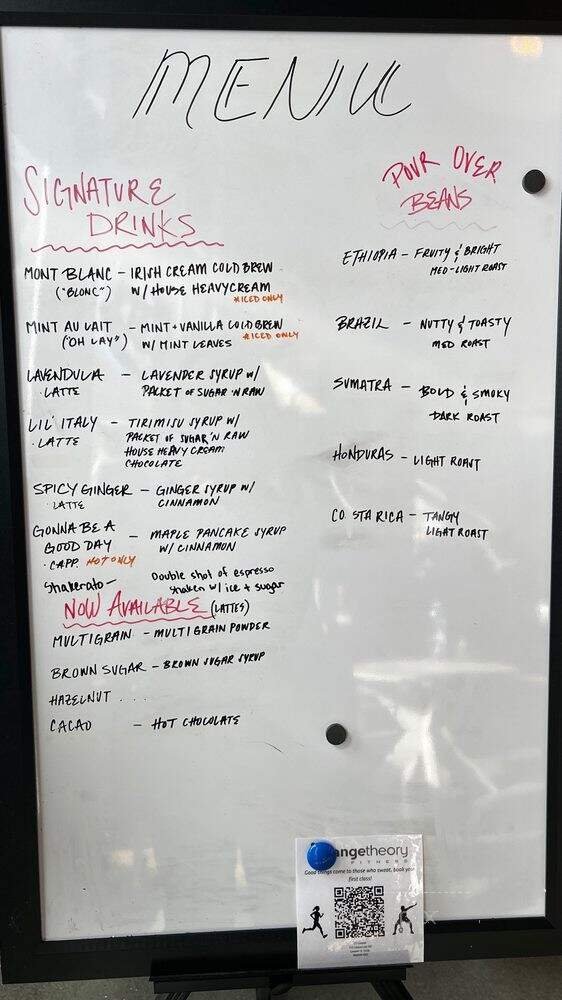 MENU
SIGNATURE
DRINKS
MONT BLANC - IRISH CREAM COLD BREW
("BLONC") W/ HOUSE HEAVY CREAM
*ICED ONLY
MINT AU LAIT - MINT + VANILLA COLD BREW
("OH LAY") W/ MINT LEAVES
*ICED ONLY
LAVENDULA - LAVENDER SYRUP W/
· LATTE PACKET OF SUGAR 'N RAW
LIL' ITALY - TIRIMISU SYRUP W/
· LATTE PACKET OF SUGAR 'N RAW
HOUSE HEAVY CREAM
CHOCOLATE
SPICY GINGER - GINGER SYRUP W/
· LATTE CINNAMON
GONNA BE A
GOOD DAY - MAPLE PANCAKE SYRUP
· CAPP. HOT ONLY W/ CINNAMON
Shakerato - Double shot of espresso
shaken w/ ice + sugar
NOW AVAILABLE (LATTES)
MULTIGRAIN - MULTI GRAIN POWDER
BROWN SUGAR - BROWN SUGAR SYRUP
HAZELNUT . . .
CACAO - HOT CHOCOLATE
POUR OVER
BEANS
ETHIOPIA - FRUITY & BRIGHT
MED-LIGHT ROAST
BRAZIL - NUTTY & TOASTY
MED ROAST
SUMATRA - BOLD & SMOKY
DARK ROAST
HONDURAS - LIGHT ROAST
COSTA RICA - TANGY
LIGHT ROAST
angetheory
FITNESS
Good things come to those who sweat, book your
first class!